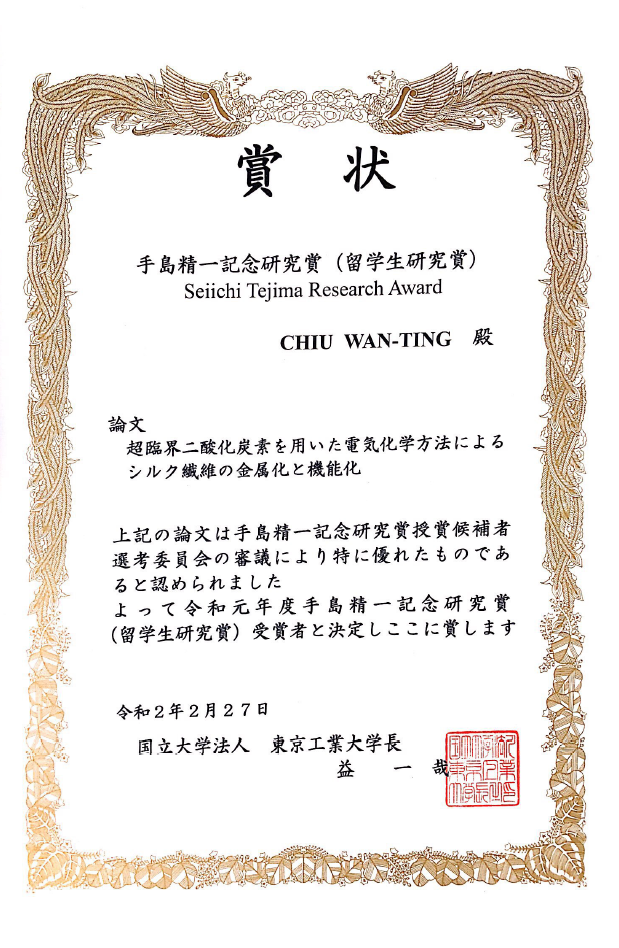 賞 状
手島精一記念研究賞（留学生研究賞）
Seiichi Tejima Research Award
CHIU WAN-TING 殿
論文
超臨界二酸化炭素を用いた電気化学方法による
シルク繊維の金属化と機能化
上記の論文は手島精一記念研究賞授賞候補者
選考委員会の審議により特に優れたものであ
ると認められました
よって令和元年度手島精一記念研究賞
(留学生研究賞）受賞者と決定しここに賞します
令和２年２月２７日
国立大学法人 東京工業大学長
益 一 哉